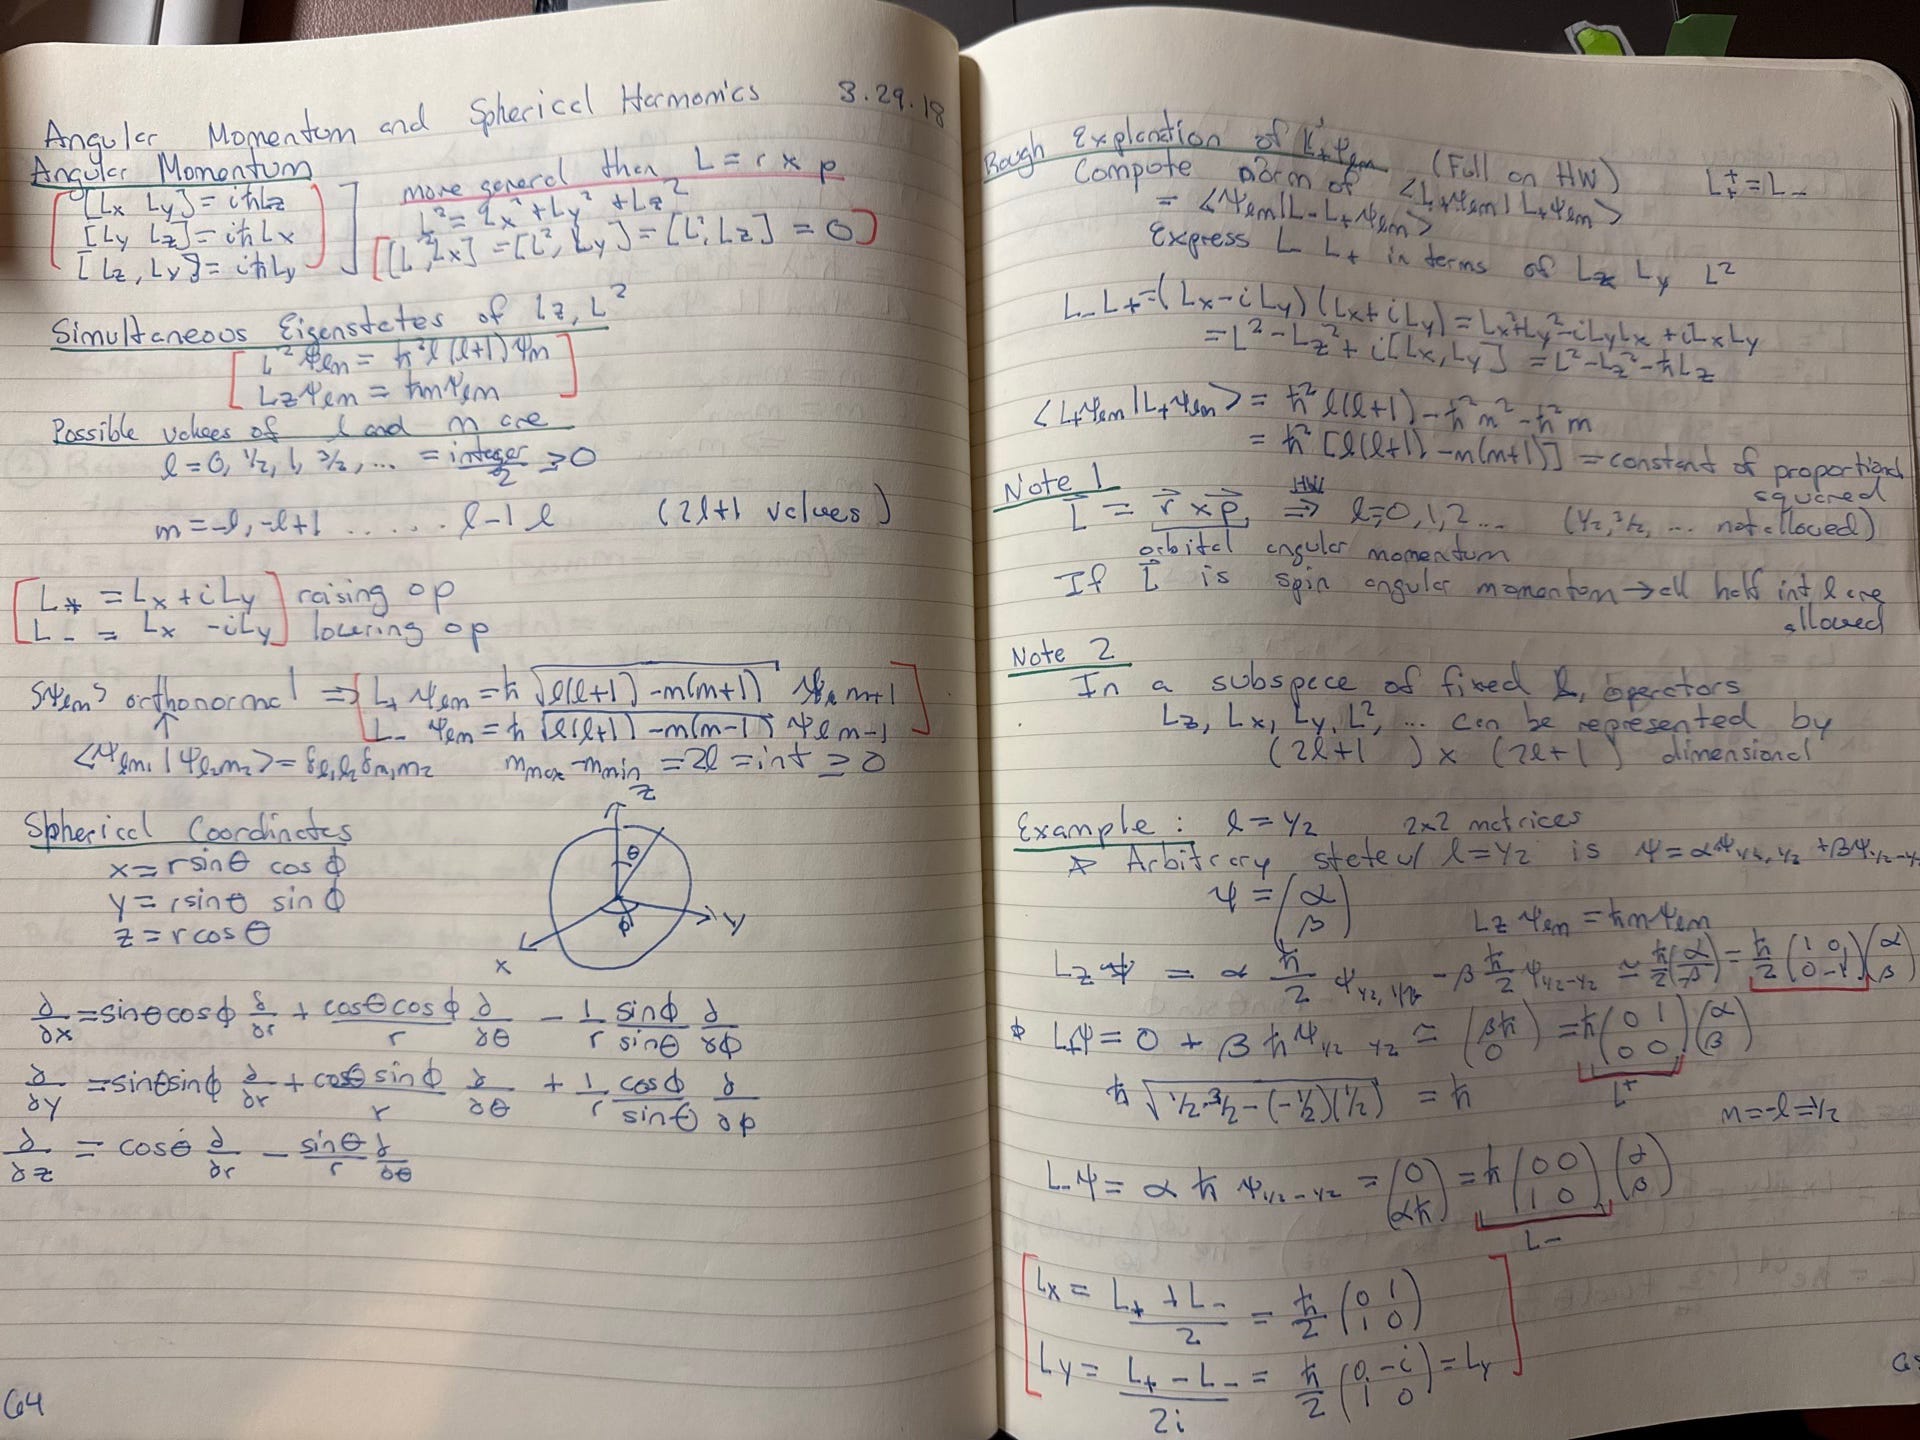 Angular Momentum and Spherical Harmonics 3.29.18
Angular Momentum
[Lx Ly] = iħLz
[Ly Lz] = iħLx
[Lz, Ly] = iħLy
more general than L = r x p
L² = Lx² + Ly² + Lz²
[L², Lx] = [L², Ly] = [L², Lz] = 0
Simultaneous Eigenstates of Lz, L²
L² Ψlm = ħ² l(l+1) Ψm
Lz Ψlm = ħm Ψlm
Possible values of l and m are
l = 0, 1/2, 1, 3/2, ... = integer/2 ≥ 0
m = -l, -l+1 ...... l-1 l (2l+1 values)
L+ = Lx + iLy raising op
L- = Lx - iLy lowering op
{Ψlm} orthonormal ⇒ L+ Ψlm = ħ √(l(l+1) - m(m+1)) Ψl m+1
L- Ψlm = ħ √(l(l+1) - m(m-1)) Ψl m-1
<Ψl1m1 | Ψl2m2> = δl1l2 δm1m2 mmax - mmin = 2l = int ≥ 0
Spherical Coordinates
x = r sinθ cos ϕ
y = r sinθ sin ϕ
z = r cos θ
z
θ
ϕ
y
x
∂/∂x = sinθcosϕ ∂/∂r + cosθcosϕ/r ∂/∂θ - 1/r sinϕ/sinθ ∂/∂ϕ
∂/∂y = sinθsinϕ ∂/∂r + cosθ sinϕ/r ∂/∂θ + 1/r cosϕ/sinθ ∂/∂ϕ
∂/∂z = cosθ ∂/∂r - sinθ/r ∂/∂θ
64
Rough Explanation of L+Ψlm (Full on HW) L+† = L-
Compute norm of <L+Ψlm | L+Ψlm>
= <Ψlm | L- L+ Ψlm>
Express L L+ in terms of Lz Ly L²
L- L+ = (Lx - iLy)(Lx + iLy) = Lx² + Ly² - iLyLx + iLxLy
= L² - Lz² + i[Lx, Ly] = L² - Lz² - ħLz
<L+Ψlm | L+Ψlm> = ħ² l(l+1) - ħ²m² - ħ²m
= ħ² [l(l+1) - m(m+1)] = constant of proportional
squared
Note 1
L = r x p HW ⇒ l = 0, 1, 2 ... (1/2, 3/2, ... not allowed)
orbital angular momentum
If L is spin angular momentum → all half int l are
allowed
Note 2
In a subspace of fixed l, operators
Lz, Lx, Ly, L², ... can be represented by
(2l+1 ) x (2l+1 ) dimensional
Example: l = 1/2 2x2 matrices
Arbitrary state w/ l = 1/2 is Ψ = αΨ1/2, 1/2 + βΨ1/2 -1/2
Ψ = (α β)
Lz Ψlm = ħm Ψlm
Lz Ψ = α ħ/2 Ψ1/2, 1/2 - β ħ/2 Ψ1/2 -1/2 ≃ ħ/2 (α -β) = ħ/2 (1 0 0 -1)(α β)
L+Ψ = 0 + β ħ Ψ1/2 1/2 ≃ (βħ 0) = ħ (0 1 0 0)(α β)
L+
= ħ
m = -l = 1/2
L-Ψ = α ħ Ψ1/2 -1/2 = (0 αħ) = ħ (0 0 1 0)(α β)
L-
Lx = L+ + L- / 2 = ħ/2 (0 1 1 0)
Ly = L+ - L- / 2i = ħ/2 (0 -i 1 0) = Ly